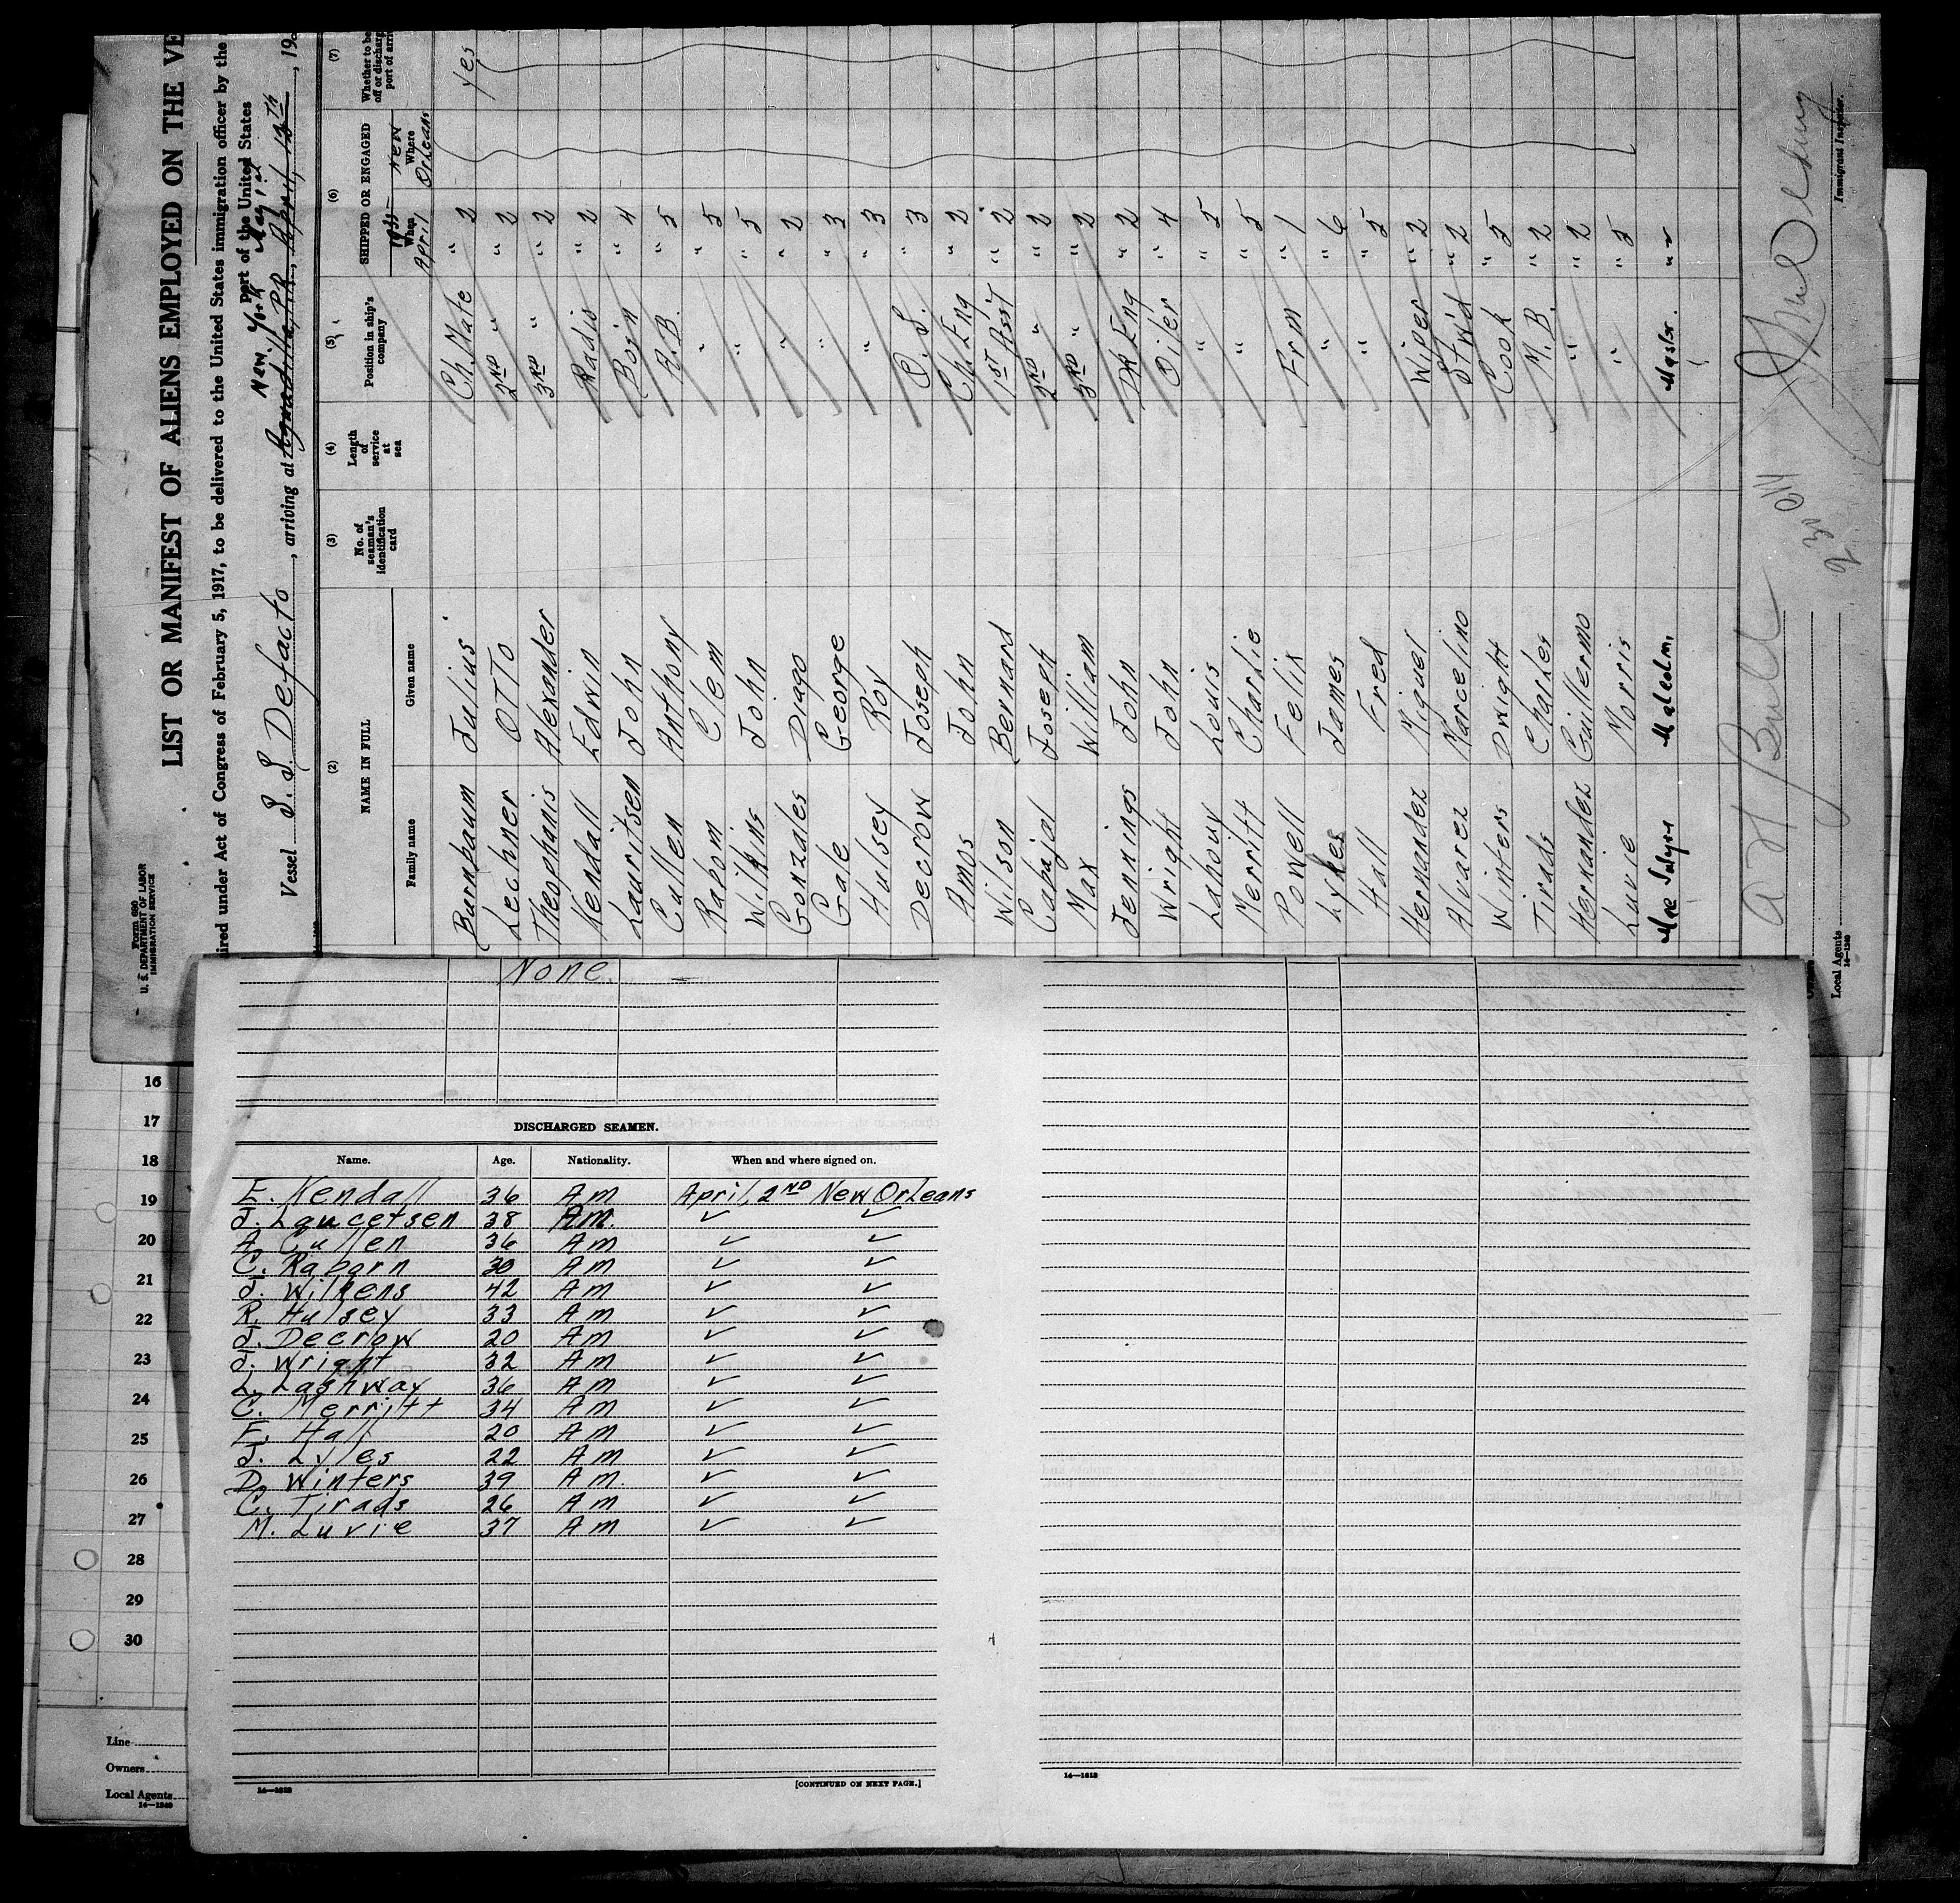 Form 680
U. S. DEPARTMENT OF LABOR
IMMIGRATION SERVICE
LIST OR MANIFEST OF ALIENS EMPLOYED ON THE VE
ired under Act of Congress of February 5, 1917, to be delivered to the United States immigration officer by the
port of the United States
New York May 1st
Vessel S. S. Defacto, arriving at Aguadilla, P.R., April, 12th, 19
(2) (3) (4) (5) (6) (7)
NAME IN FULL No. of seaman's identification card Length of service at sea Position in ship's company SHIPPED OR ENGAGED Whether to be
off or discharg
port of arri
Family name Given name When Where
April New Orleans
Burnbaum Julius Ch. Mate " 2 Yes
Lechner OTTO 2ND " " 2
Theophanis Alexander 3RD " " 2
Kendall Edwin Radio " 2
Lauritsen John Bosin " 4
Cullen Anthony A.B. " 5
Raborn Clem " " 5
Wilkins John " " 5
Gonzales Diago " " 2
Gale George " " 3
Hulsey Roy " " 3
Decrow Joseph O.S. " 3
Amos John Ch. Eng " 2
Wilson Bernard 1ST Ass'T " 2
Cabajal Joseph 2ND " " 2
Max William 3RD " " 2
Jennings John DK Eng " 2
Wright John Oiler " 4
Lahouy Louis " " 5
Merritt Charlie " " 5
Powell Felix Frm " 1
Lykes James " " 6
Hall Fred " " 5
Hernandez Miguel Wiper " 2
Alvarez Marcelino Stw'd " 2
Winters Dwight Cook " 5
Tirads Charles M.B. " 2
Hernandez Guillermo " " 2
Luvie Morris " " 5
Malcolm, Master. " "
A H Bull
23 011
Immigrant Inspector.
Local Agents
14—1240
None.
DISCHARGED SEAMEN.
Name. Age. Nationality. When and where signed on.
E. Kendall 36 Am April, 2ND New Orleans
J. Laucetsen 38 Am. ✓ ✓
A. Cullen 36 Am ✓ ✓
C. Raborn 30 Am ✓ ✓
J. Wilkens 42 Am ✓ ✓
R. Hulsey 33 Am ✓ ✓
J. Decrow 20 Am ✓ ✓
J. Wright 32 Am ✓ ✓
L. Lashway 36 Am ✓ ✓
C. Merritt 34 Am ✓ ✓
F. Hall 20 Am ✓ ✓
J. Lyles 22 Am ✓ ✓
D. Winters 39 Am ✓ ✓
C. Tirads 26 Am ✓ ✓
M. Luvie 37 Am ✓ ✓
14—1613
[CONTINUED ON NEXT PAGE.]
14—1613
16
17
18
19
20
21
22
23
24
25
26
27
28
29
30
Line
Owners
Local Agents
14—1240